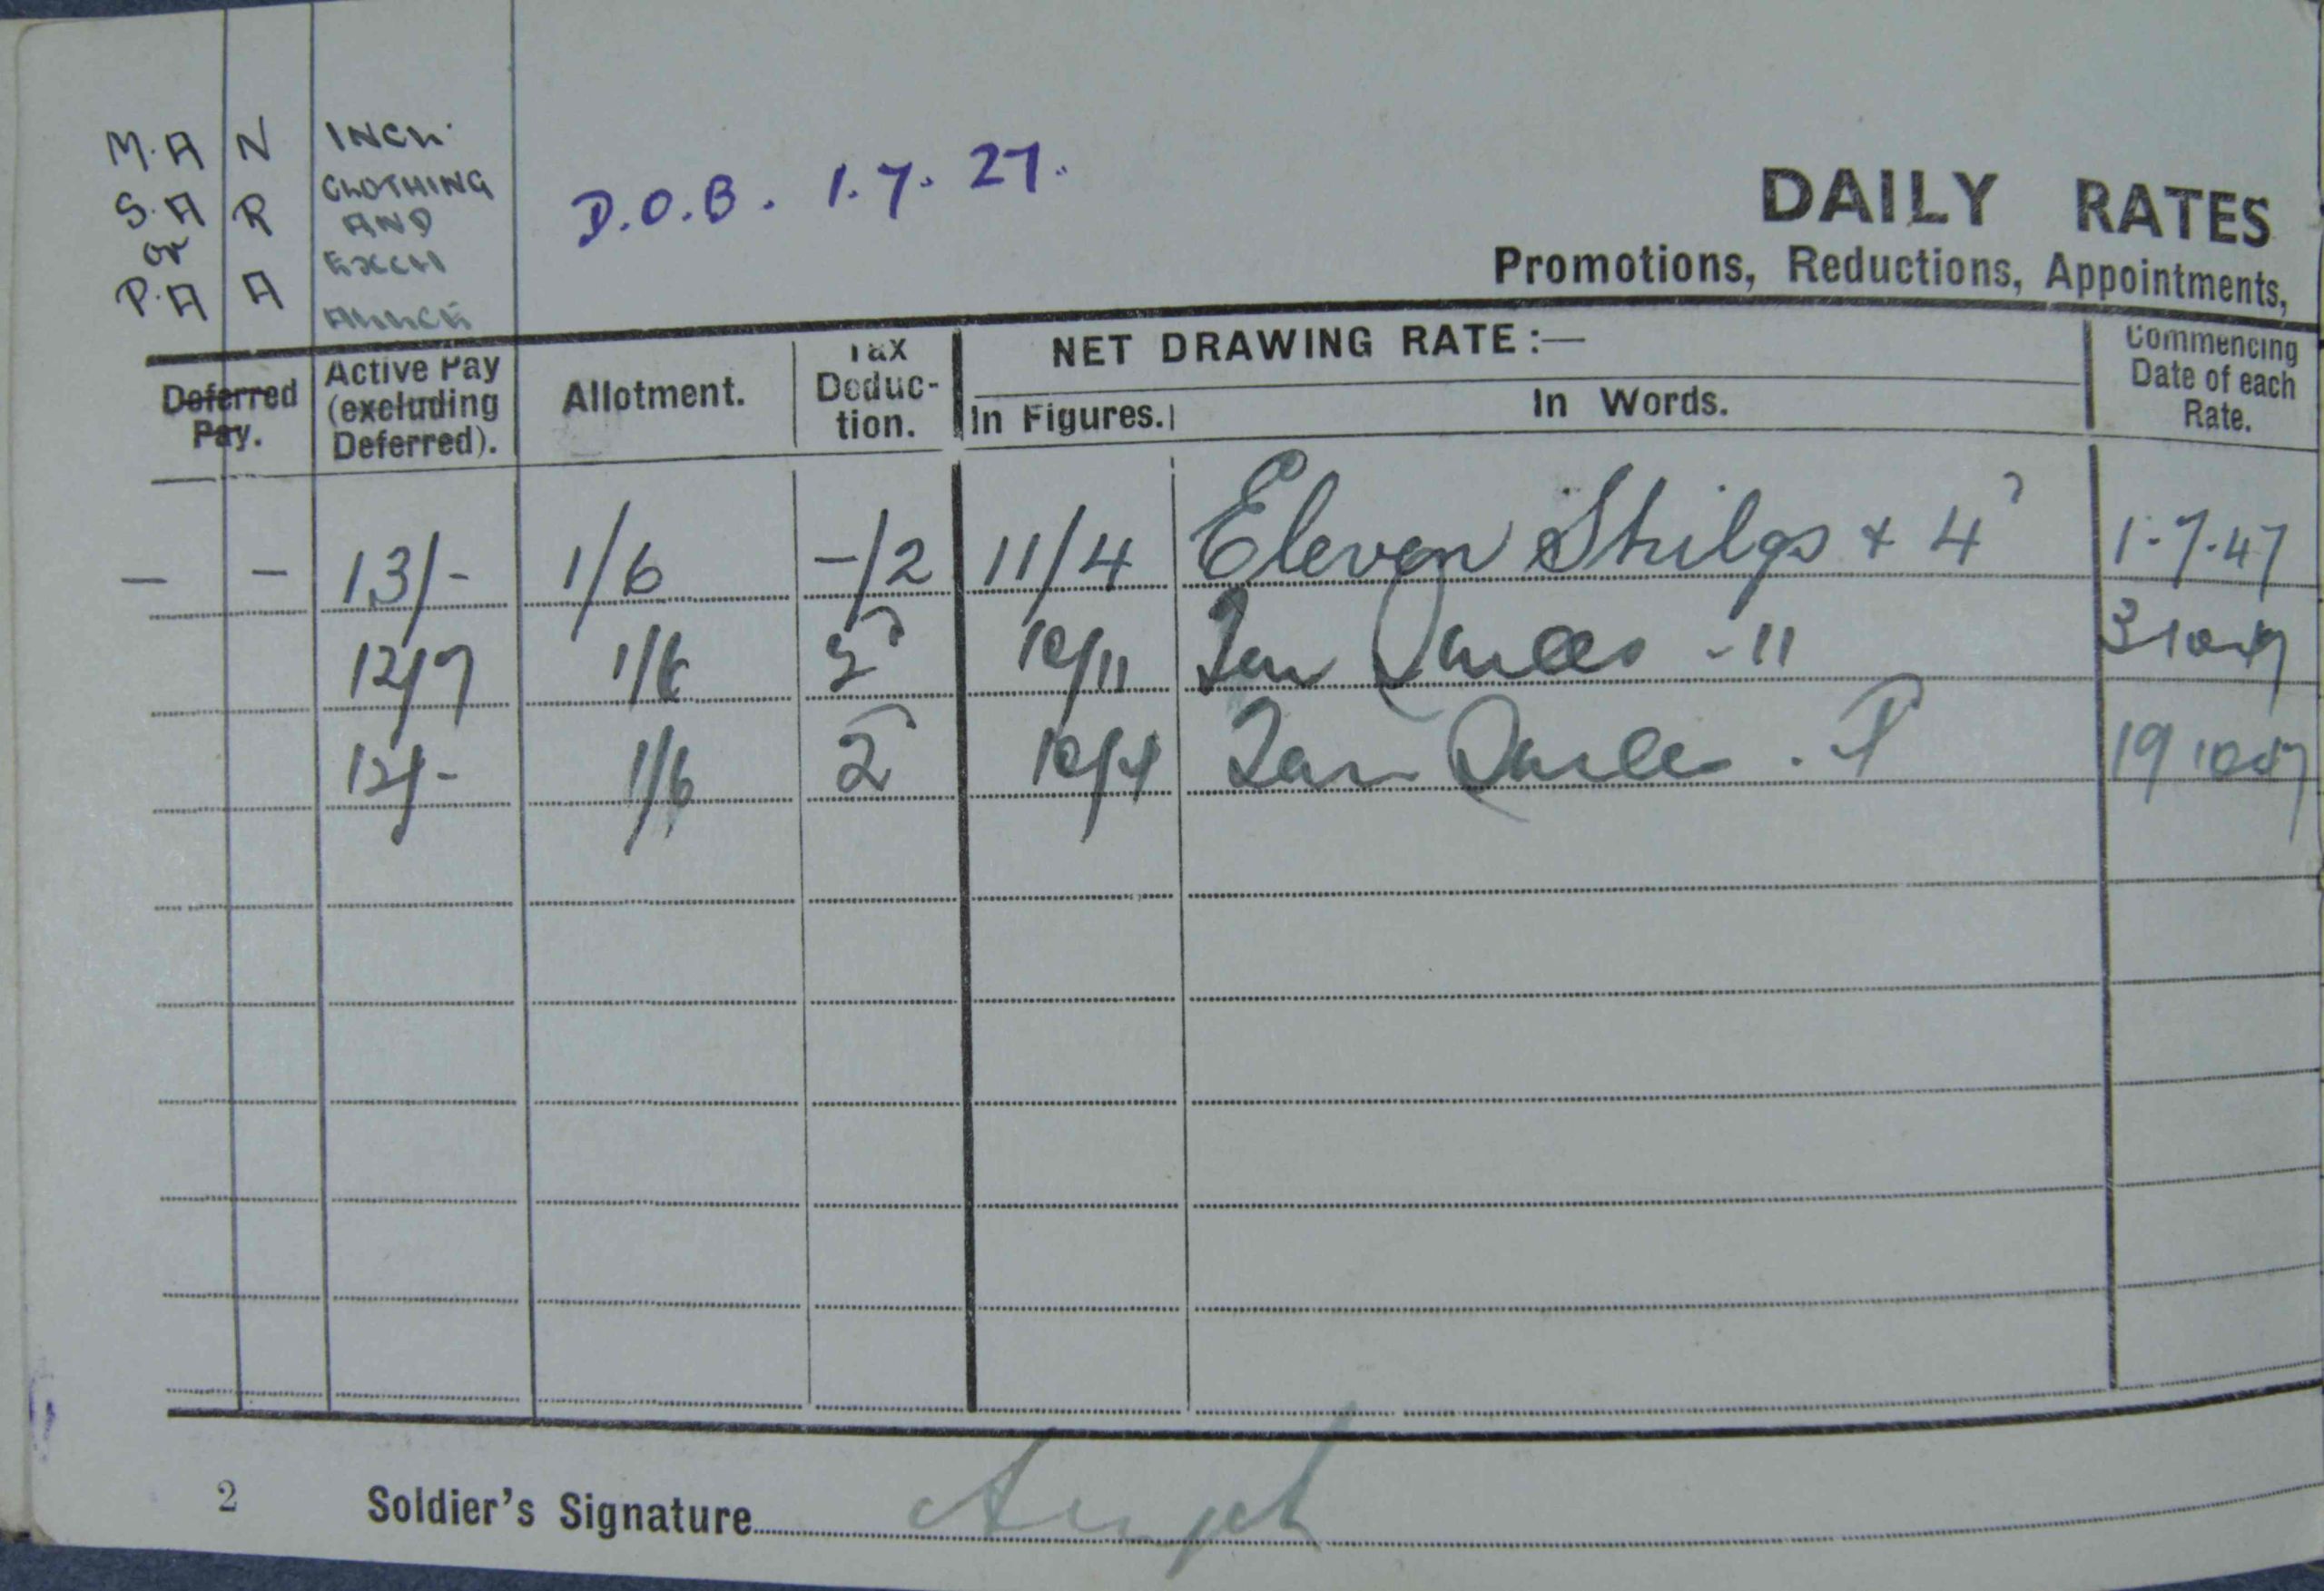 M.A N INCL.
S.A R CLOTHING
or AND
P.A A EXCH
D.O.B. 1.7.27.
DAILY RATES
Promotions, Reductions, Appointments,
Deferred Pay.
Active Pay (excluding Deferred).
Allotment.
Tax Deduc-tion.
NET DRAWING RATE:—
In Figures.
In Words.
Commencing Date of each Rate.
— - 13/- 1/6 -/2 11/4 Eleven Shilgs + 4 1.7.47
12/7 1/6 2 10/11 Ten - 11
12/- 1/6 2 10/4 Ten 19
2 Soldier's Signature